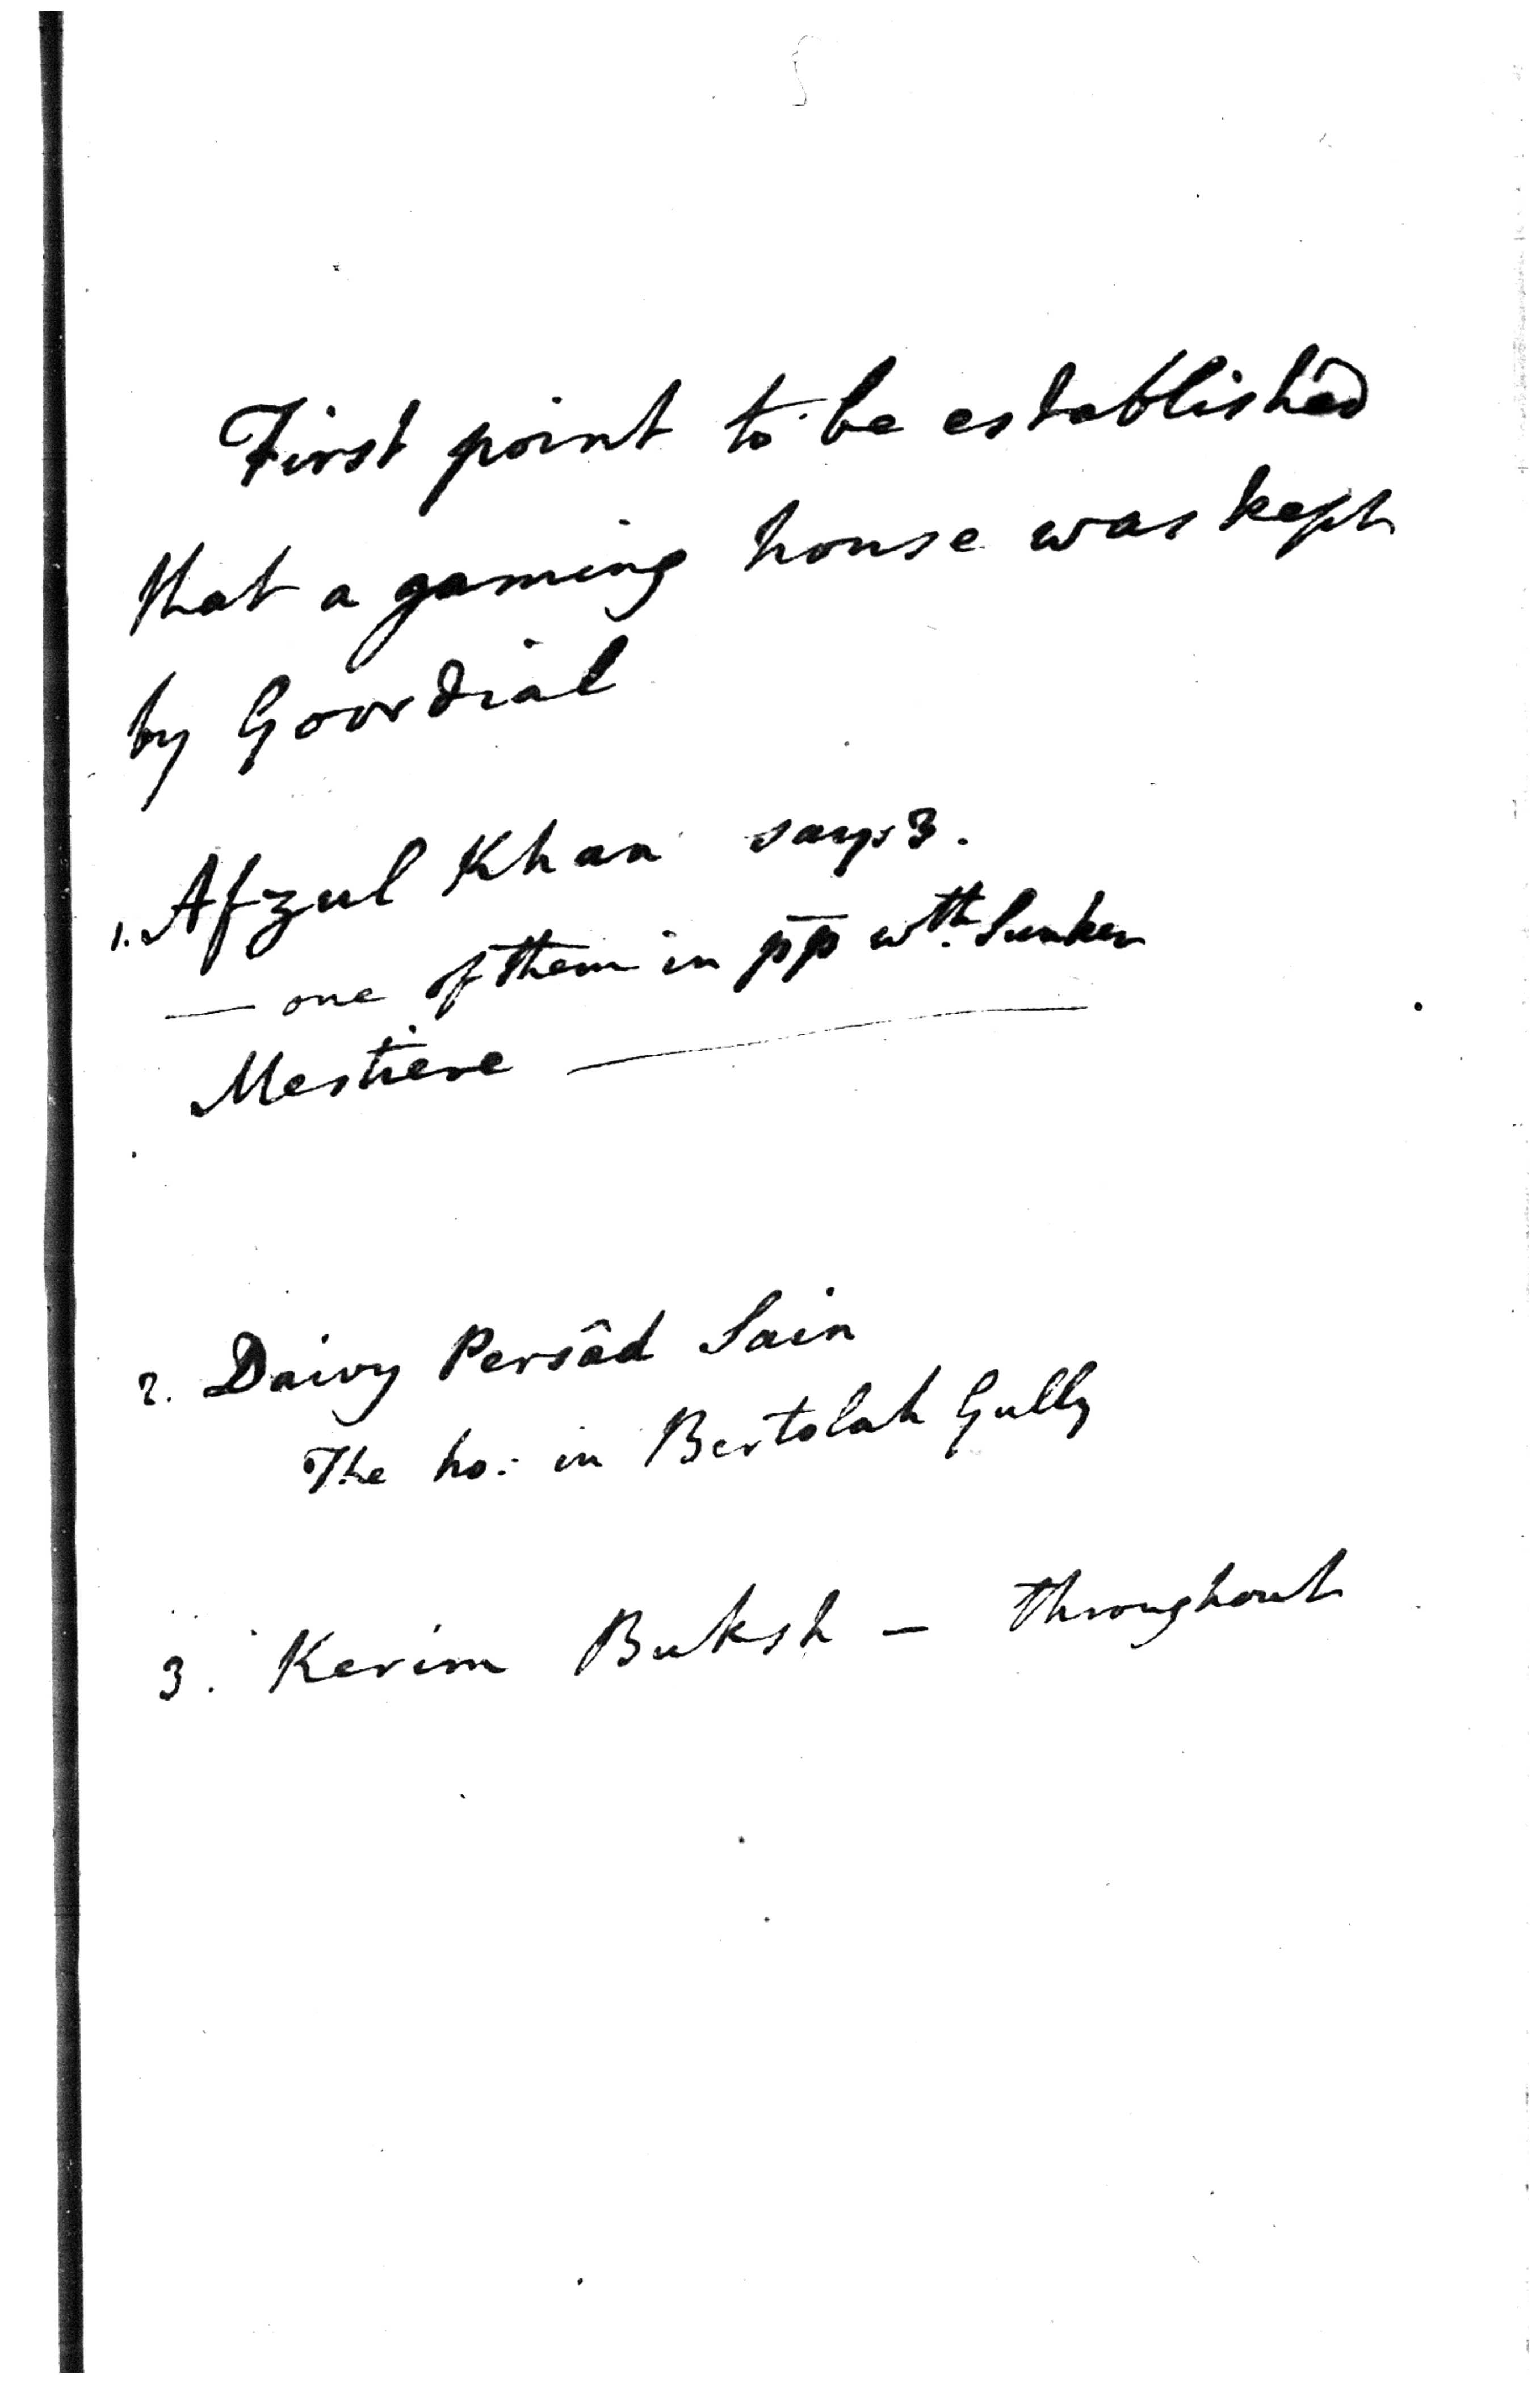 First point to be established
that a gaming house was kept
by Goordial
1. Afzul Khan says 3.
— one of them in p̅p̅ wth. Sunker
Mestiere —
2. Daivy Persâd Sain
The ho: in Bertolah Gully
3. Kerim Buksh — throughout